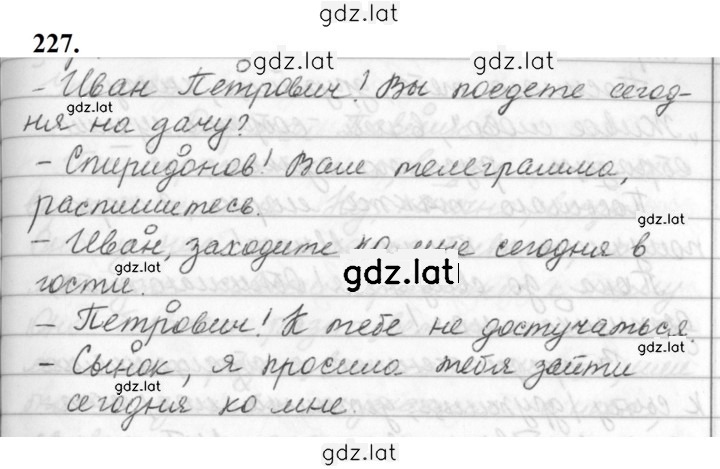 gdz.lat
227.
gdz.lat gdz.lat
- Иван Петрович! Вы поедете сегод-
gdz.lat
ня на дачу?
- Спиридонов! Вам телеграмма,
распишитесь.
gdz.lat
- Иван, заходите ко мне сегодня в
gdz.lat gdz.lat
гости.
- Петрович! К тебе не достучаться.
gdz.lat
- Сынок, я просила тебя зайти
gdz.lat
сегодня ко мне.
gdz.lat